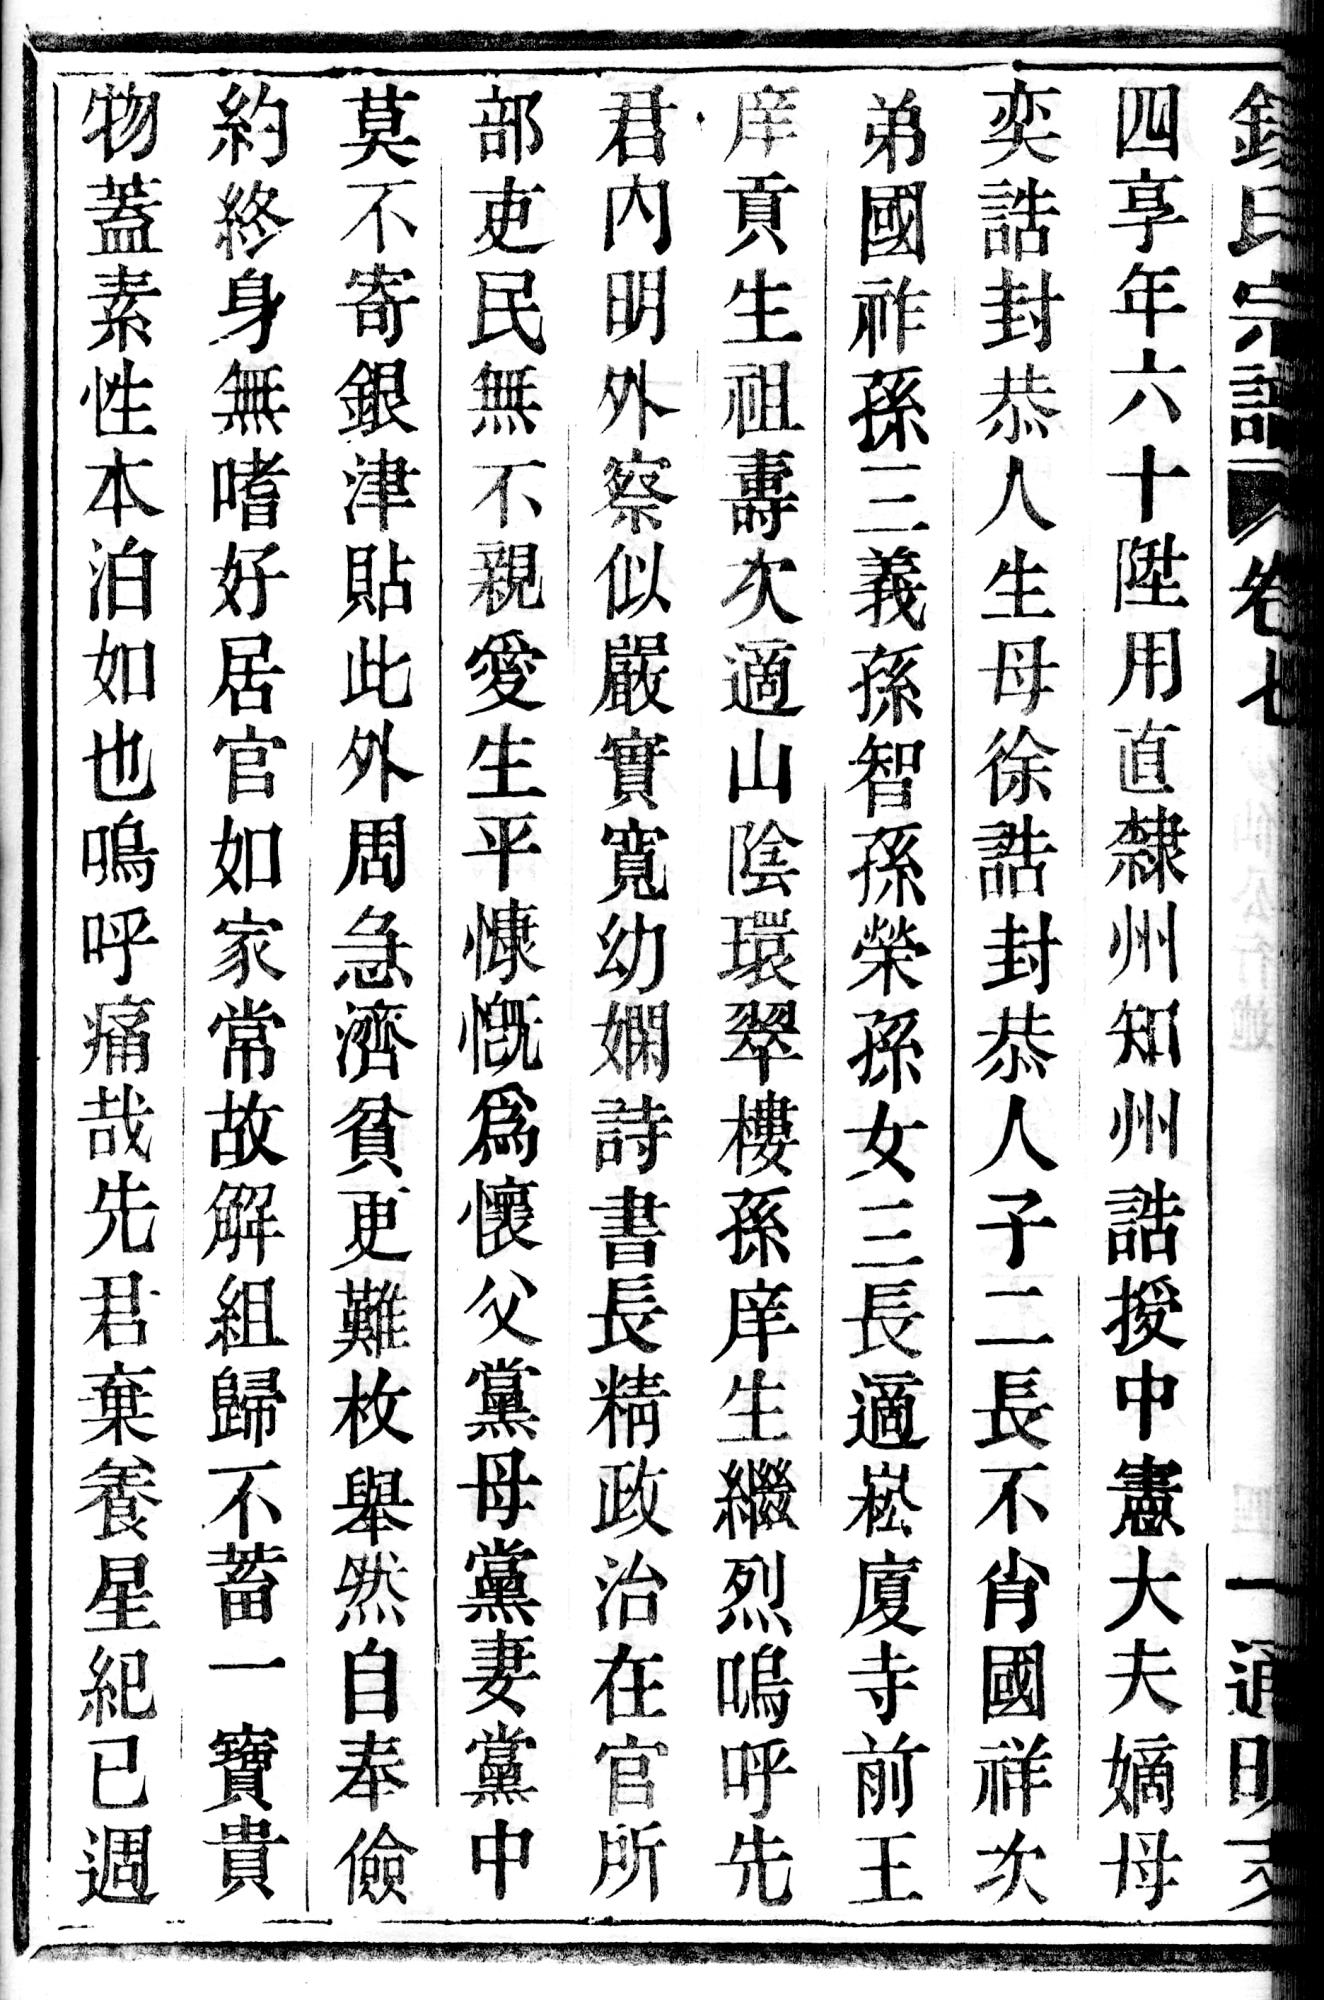 氏宗譜 卷七 一 通明支
四享年六十陞用直隸州知州誥授中憲大夫嫡母
奕誥封恭人生母徐誥封恭人子二長不肖國祥次
弟國祚孫三義孫智孫榮孫女三長適崧廈寺前王
庠貢生祖壽次適山陰環翠樓孫庠生繼烈嗚呼先
君內明外察似嚴實寬幼嫻詩書長精政治在官所
部吏民無不親愛生平慷慨爲懷父黨母黨妻黨中
莫不寄銀津貼此外周急濟貧更難枚舉然自奉儉
約終身無嗜好居官如家常故解組歸不蓄一寶貴
物蓋素性本泊如也嗚呼痛哉先君棄養星紀已週